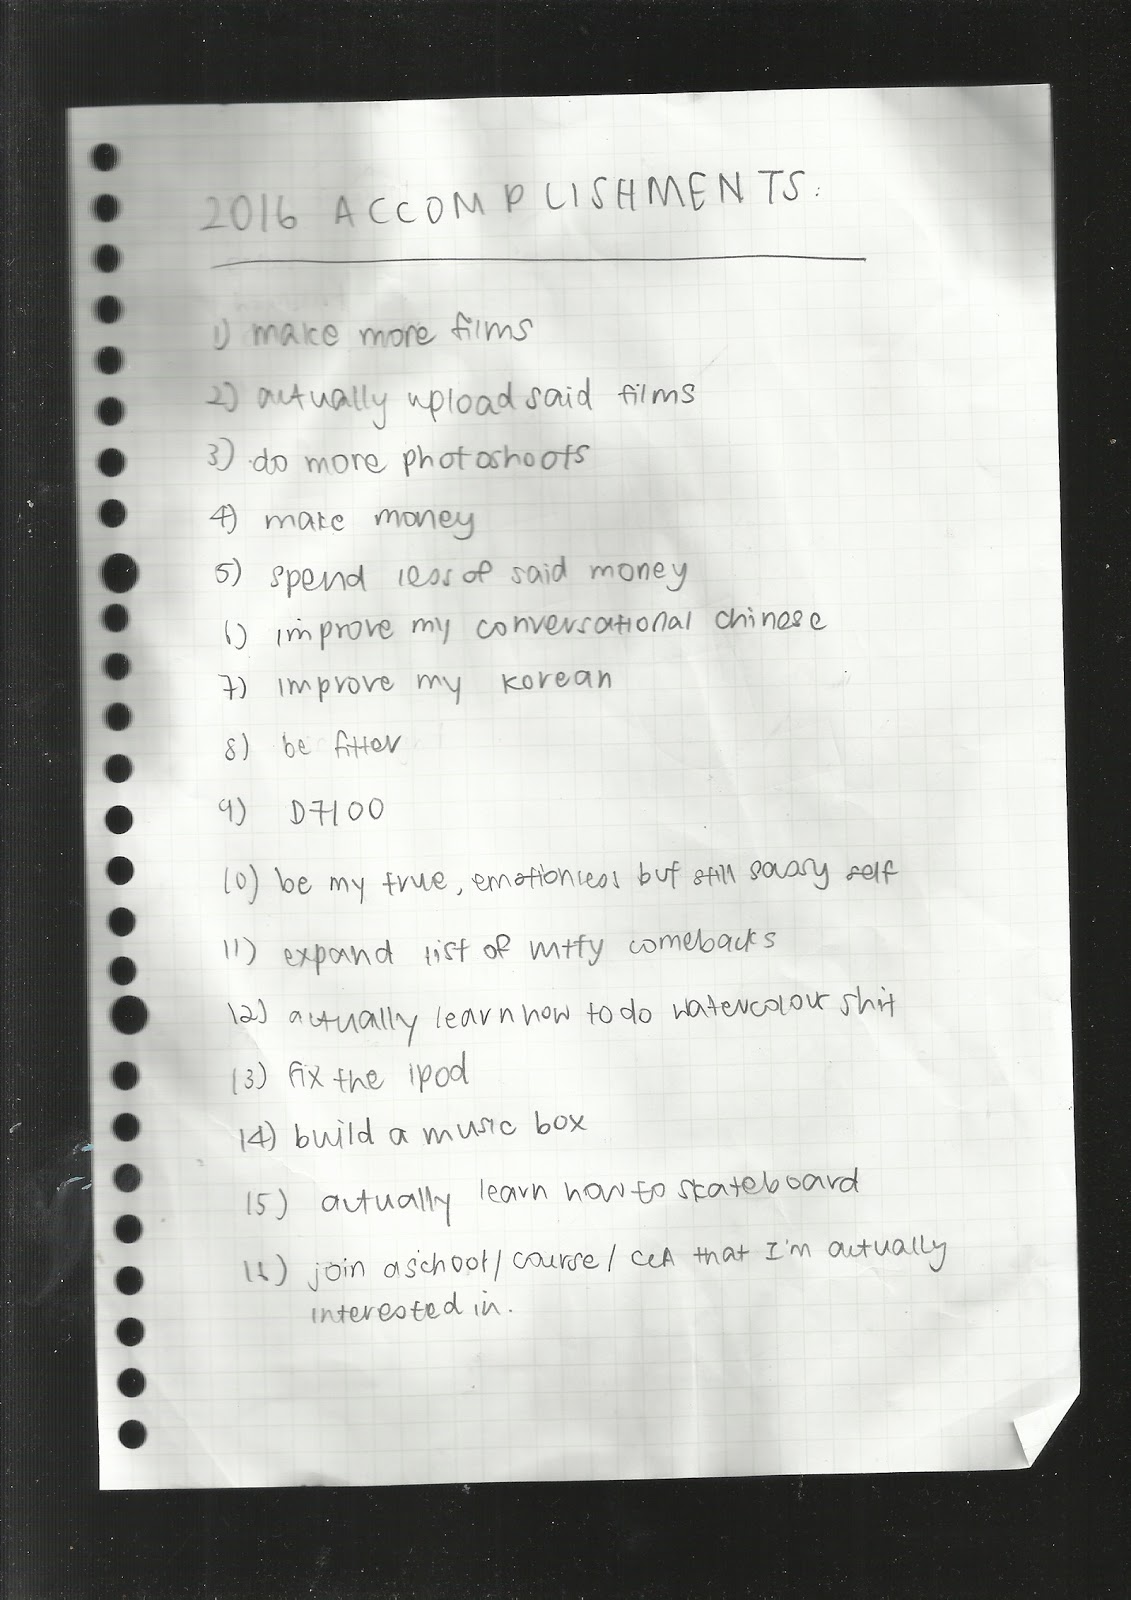 2016 ACCOMPLISHMENTS:
1) make more films
2) actually upload said films
3) do more photoshoots
4) make money
5) spend less of said money
6) improve my conversational chinese
7) improve my korean
8) be fitter
9) D7100
10) be my true, emotionless but still sassy self
11) expand list of witty comebacks
12) actually learn how to do watercolour shit
13) fix the ipod
14) build a music box
15) actually learn how to skateboard
16) join a school/course/CCA that I'm actually
interested in.